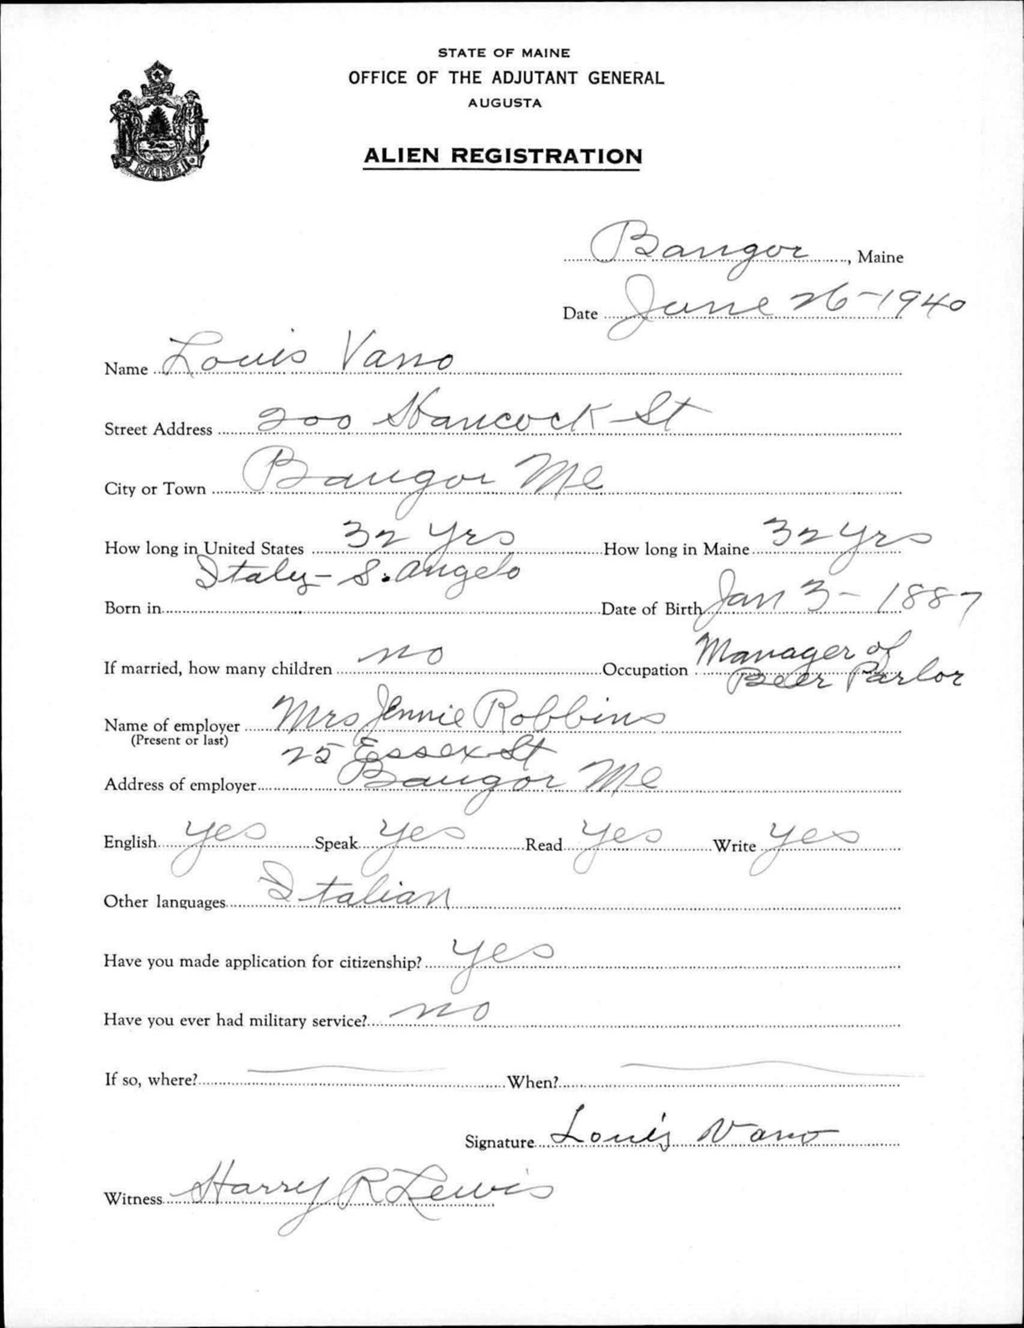 STATE OF MAINE
OFFICE OF THE ADJUTANT GENERAL
AUGUSTA
MAINE
ALIEN REGISTRATION
Bangor, Maine
Date June 26-1940
Name Louis Vano
Street Address 200 Hancock St
City or Town Bangor Me
How long in United States 32 yrs How long in Maine 32 yrs
Italy - S. Angelo
Born in Date of Birth Jan 3 - 1887
If married, how many children no Occupation Manager of
Beer Parlor
Name of employer Mrs Jennie Robbins
(Present or last)
25 Essex St
Address of employer Bangor Me
English yes Speak yes Read yes Write yes
Other languages Italian
Have you made application for citizenship? yes
Have you ever had military service? no
If so, where? When?
Signature Louis Vano
Witness Harry R Lewis